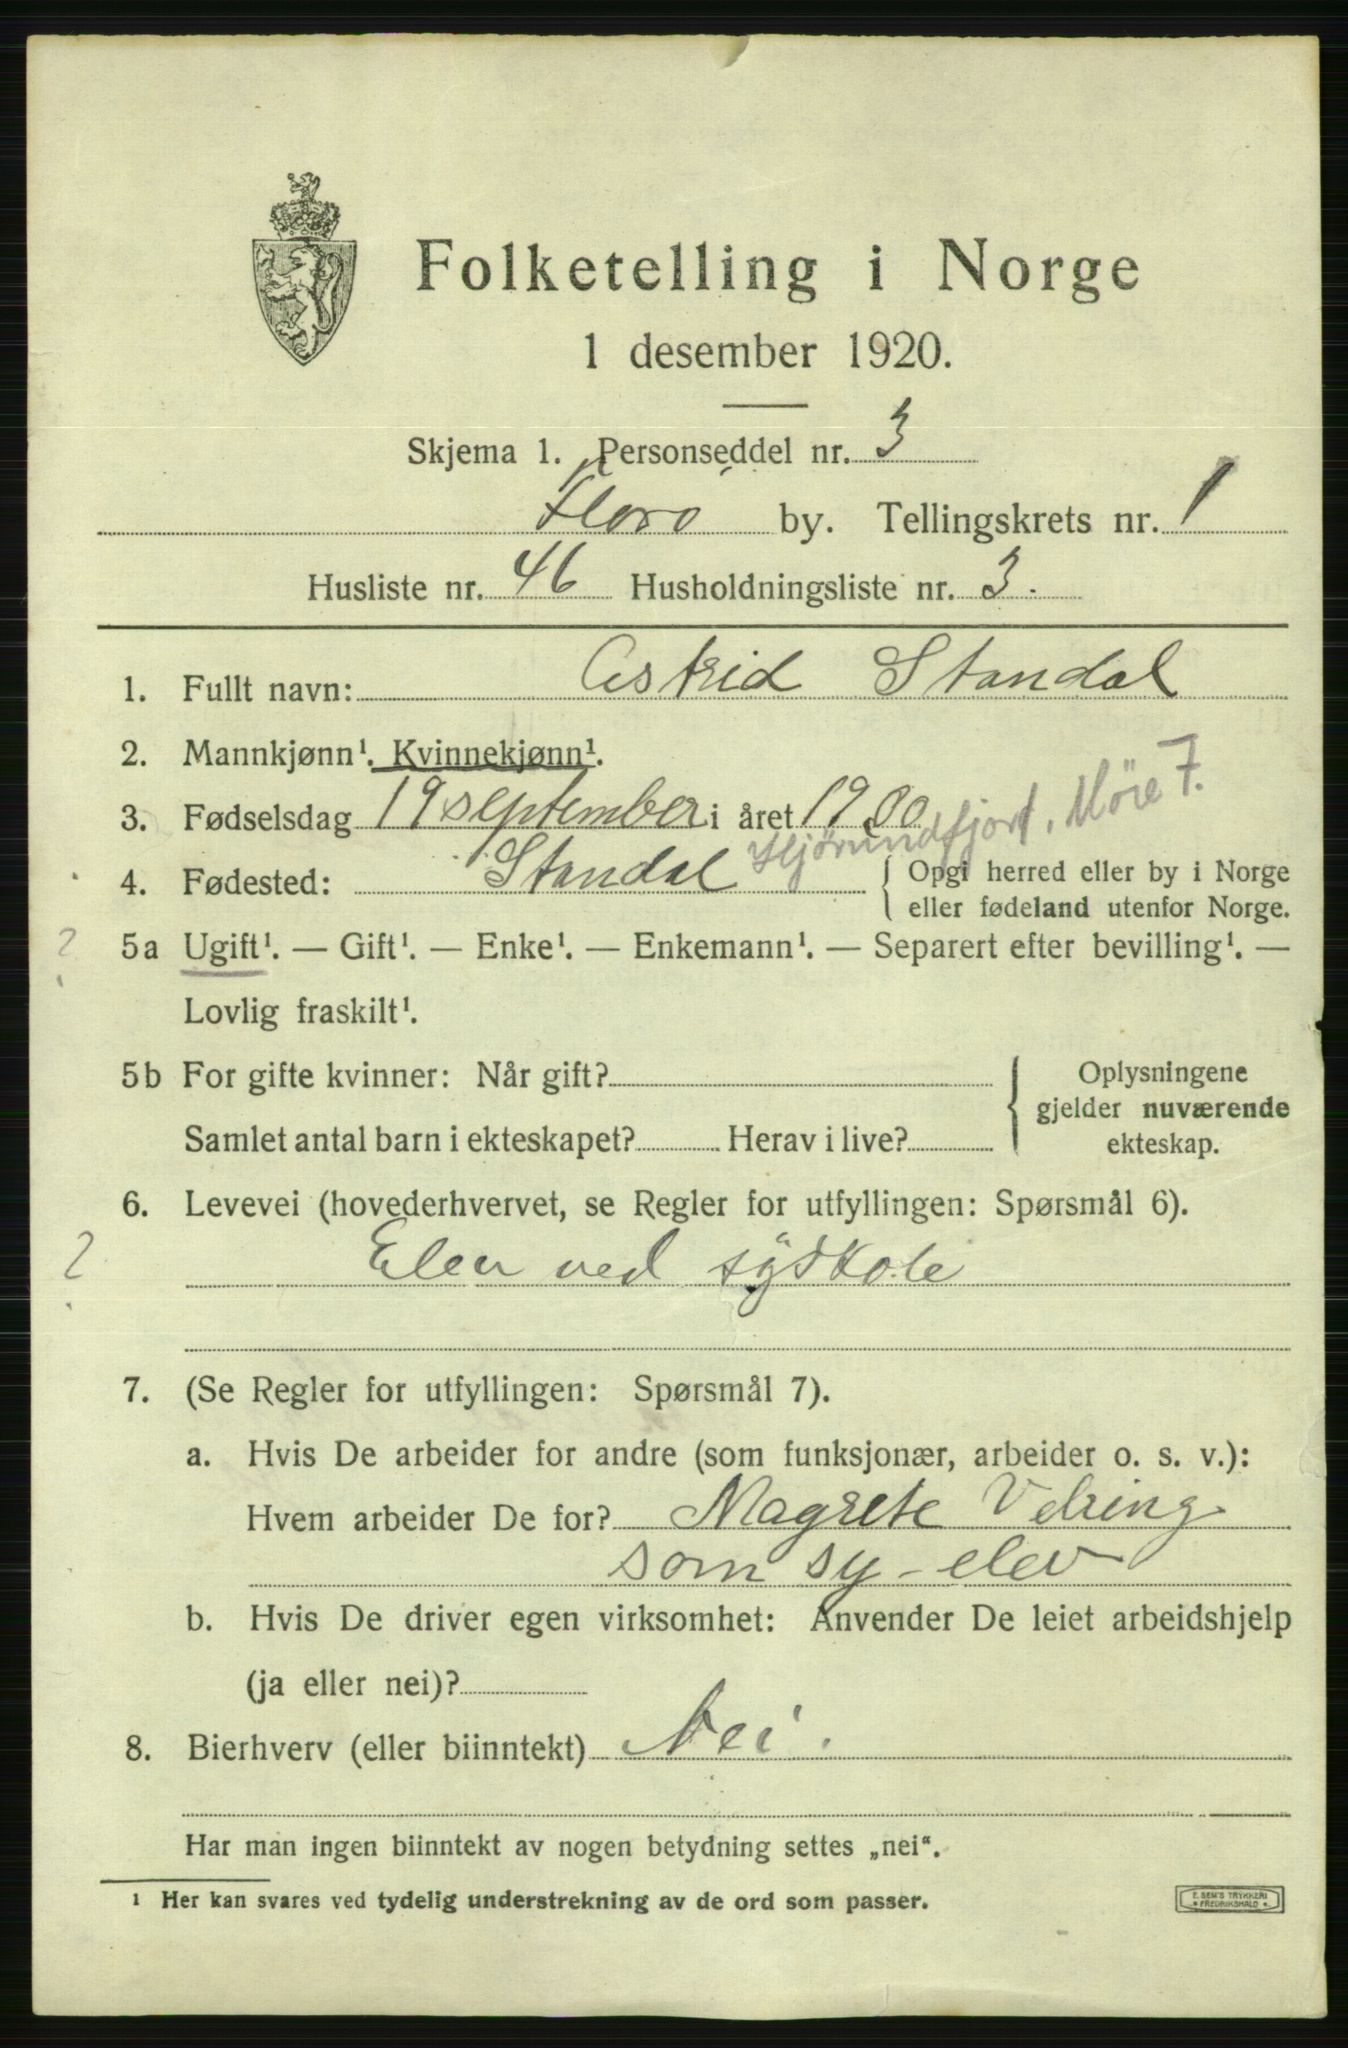 Folketelling i Norge
1 desember 1920.
Skjema 1. Personseddel nr. 3
Florö by. Tellingskrets nr. 1
Husliste nr. 46 Husholdningsliste nr. 3.
1. Fullt navn: Astrid Standal
2. Mannkjønn¹. Kvinnekjønn¹.
3. Fødselsdag 19 september i året 1900
4. Fødested: Standal Hjørundfjord, Möre 7.
{ Opgi herred eller by i Norge
eller fødeland utenfor Norge.
? 5a Ugift¹. — Gift¹. — Enke¹. — Enkemann¹. — Separert efter bevilling¹. —
Lovlig fraskilt¹.
5b For gifte kvinner: Når gift?
Samlet antal barn i ekteskapet? Herav i live?
{ Oplysningene
gjelder nuværende
ekteskap.
6. Levevei (hovederhvervet, se Regler for utfyllingen: Spørsmål 6).
? Elev ved syskole
7. (Se Regler for utfyllingen: Spørsmål 7).
a. Hvis De arbeider for andre (som funksjonær, arbeider o. s. v.):
Hvem arbeider De for? Magrete
som sy-elev
b. Hvis De driver egen virksomhet: Anvender De leiet arbeidshjelp
(ja eller nei)?
8. Bierhverv (eller biinntekt) Nei.
Har man ingen biinntekt av nogen betydning settes „nei“.
¹ Her kan svares ved tydelig understrekning av de ord som passer.
E. SEM'S TRYKKERI
• FREDRIKSHALD •